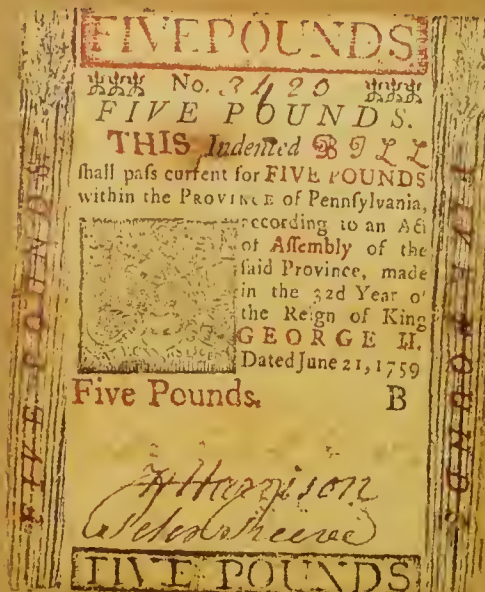 FIVE POUNDS
No. 3420
FIVE POUNDS.
THIS Indented BILL
ſhall paſs current for FIVE POUNDS
within the PROVINCE of Pennſylvania,
according to an Act
of Aſſembly of the
ſaid Province, made
in the 32d Year o
the Reign of King
GEORGE II.
Dated June 21, 1759
Five Pounds.
B
Harrison
Peter Reeve
FIVE POUNDS
FIVE POUNDS
FIVE POUNDS